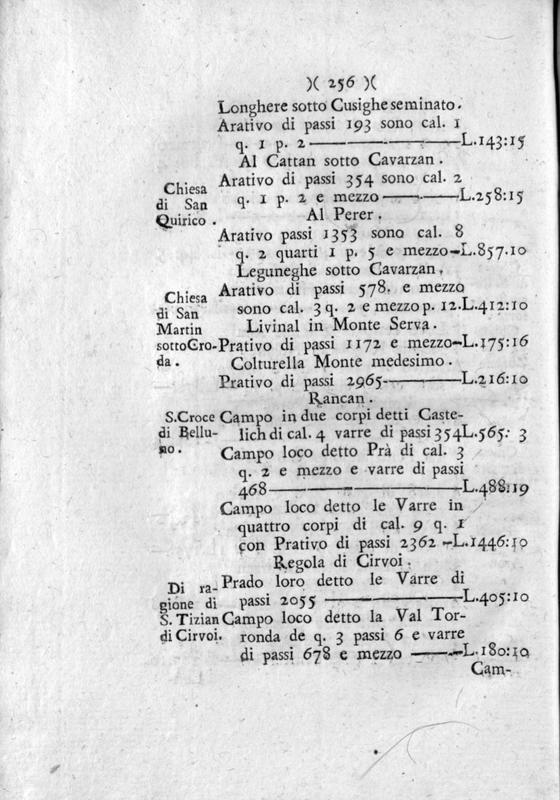 )( 256 )(
Longhere sotto Cusighe seminato.
Arativo di passi 193 sono cal. 1
q. 1 p. 2 — L.143:15
Al Cattan sotto Cavarzan.
Chiesa di San Quirico.
Arativo di passi 354 sono cal. 2
q. 1 p. 2 e mezzo — L.258:15
Al Perer.
Arativo passi 1353 sono cal. 8
q. 2 quarti 1 p. 5 e mezzo — L.857.10
Leguneghe sotto Cavarzan.
Chiesa di San Martin sotto Groda.
Arativo di passi 578. e mezzo
sono cal. 3 q. 2 e mezzo p. 12. L.412:10
Livinal in Monte Serva.
Prativo di passi 1172 e mezzo — L.175:16
Colturella Monte medesimo.
Prativo di passi 2965 — L.216:10
Rancan.
S. Croce di Belluno.
Campo in due corpi detti Caste-
lich di cal. 4 varre di passi 354 L.565: 3
Campo loco detto Prà di cal. 3
q. 2 e mezzo e varre di passi
468 — L.488:19
Campo loco detto le Varre in
quattro corpi di cal. 9 q. 1
con Prativo di passi 2362 — L.1446:10
Regola di Cirvoi.
Di ra-
gione di
S. Tizian
di Cirvoi.
Prado loro detto le Varre di
passi 2055 — L.405:10
Campo loco detto la Val Tor-
ronda de q. 3 passi 6 e varre
di passi 678 e mezzo — L.180:10
Cam-